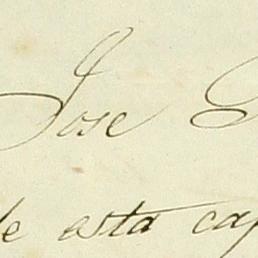 Jose G
de esta cap